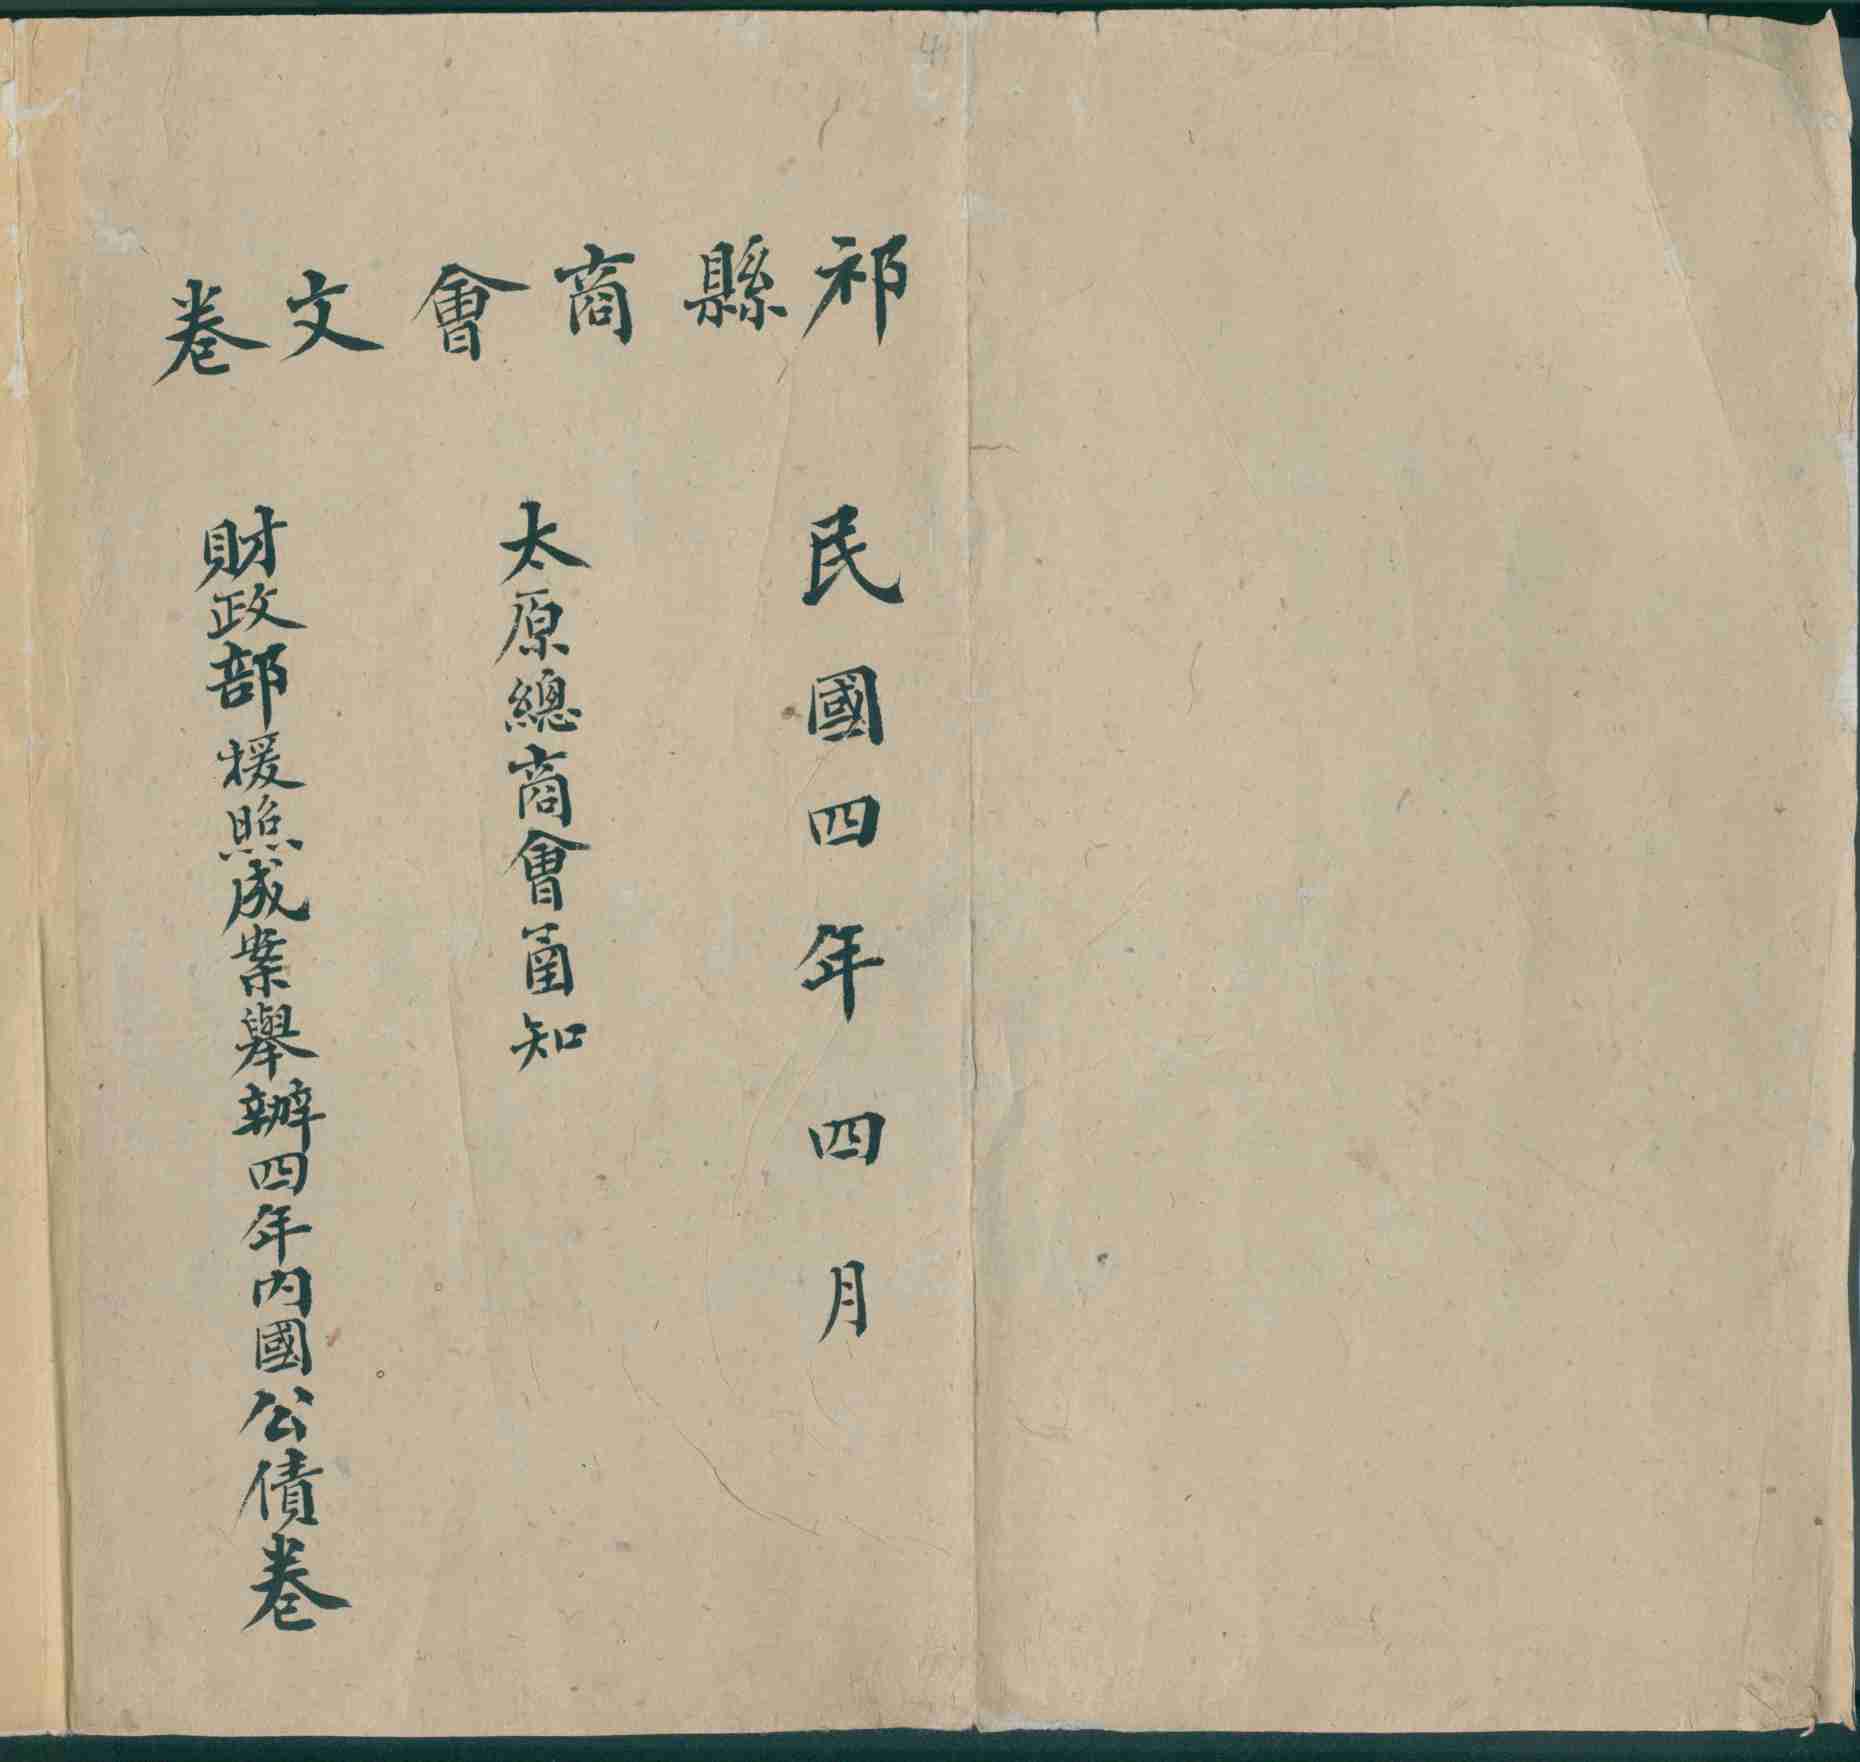 4
祁縣商會文卷
民國四年四月
太原總商會函知
財政部援照成案舉辦四年內國公債卷